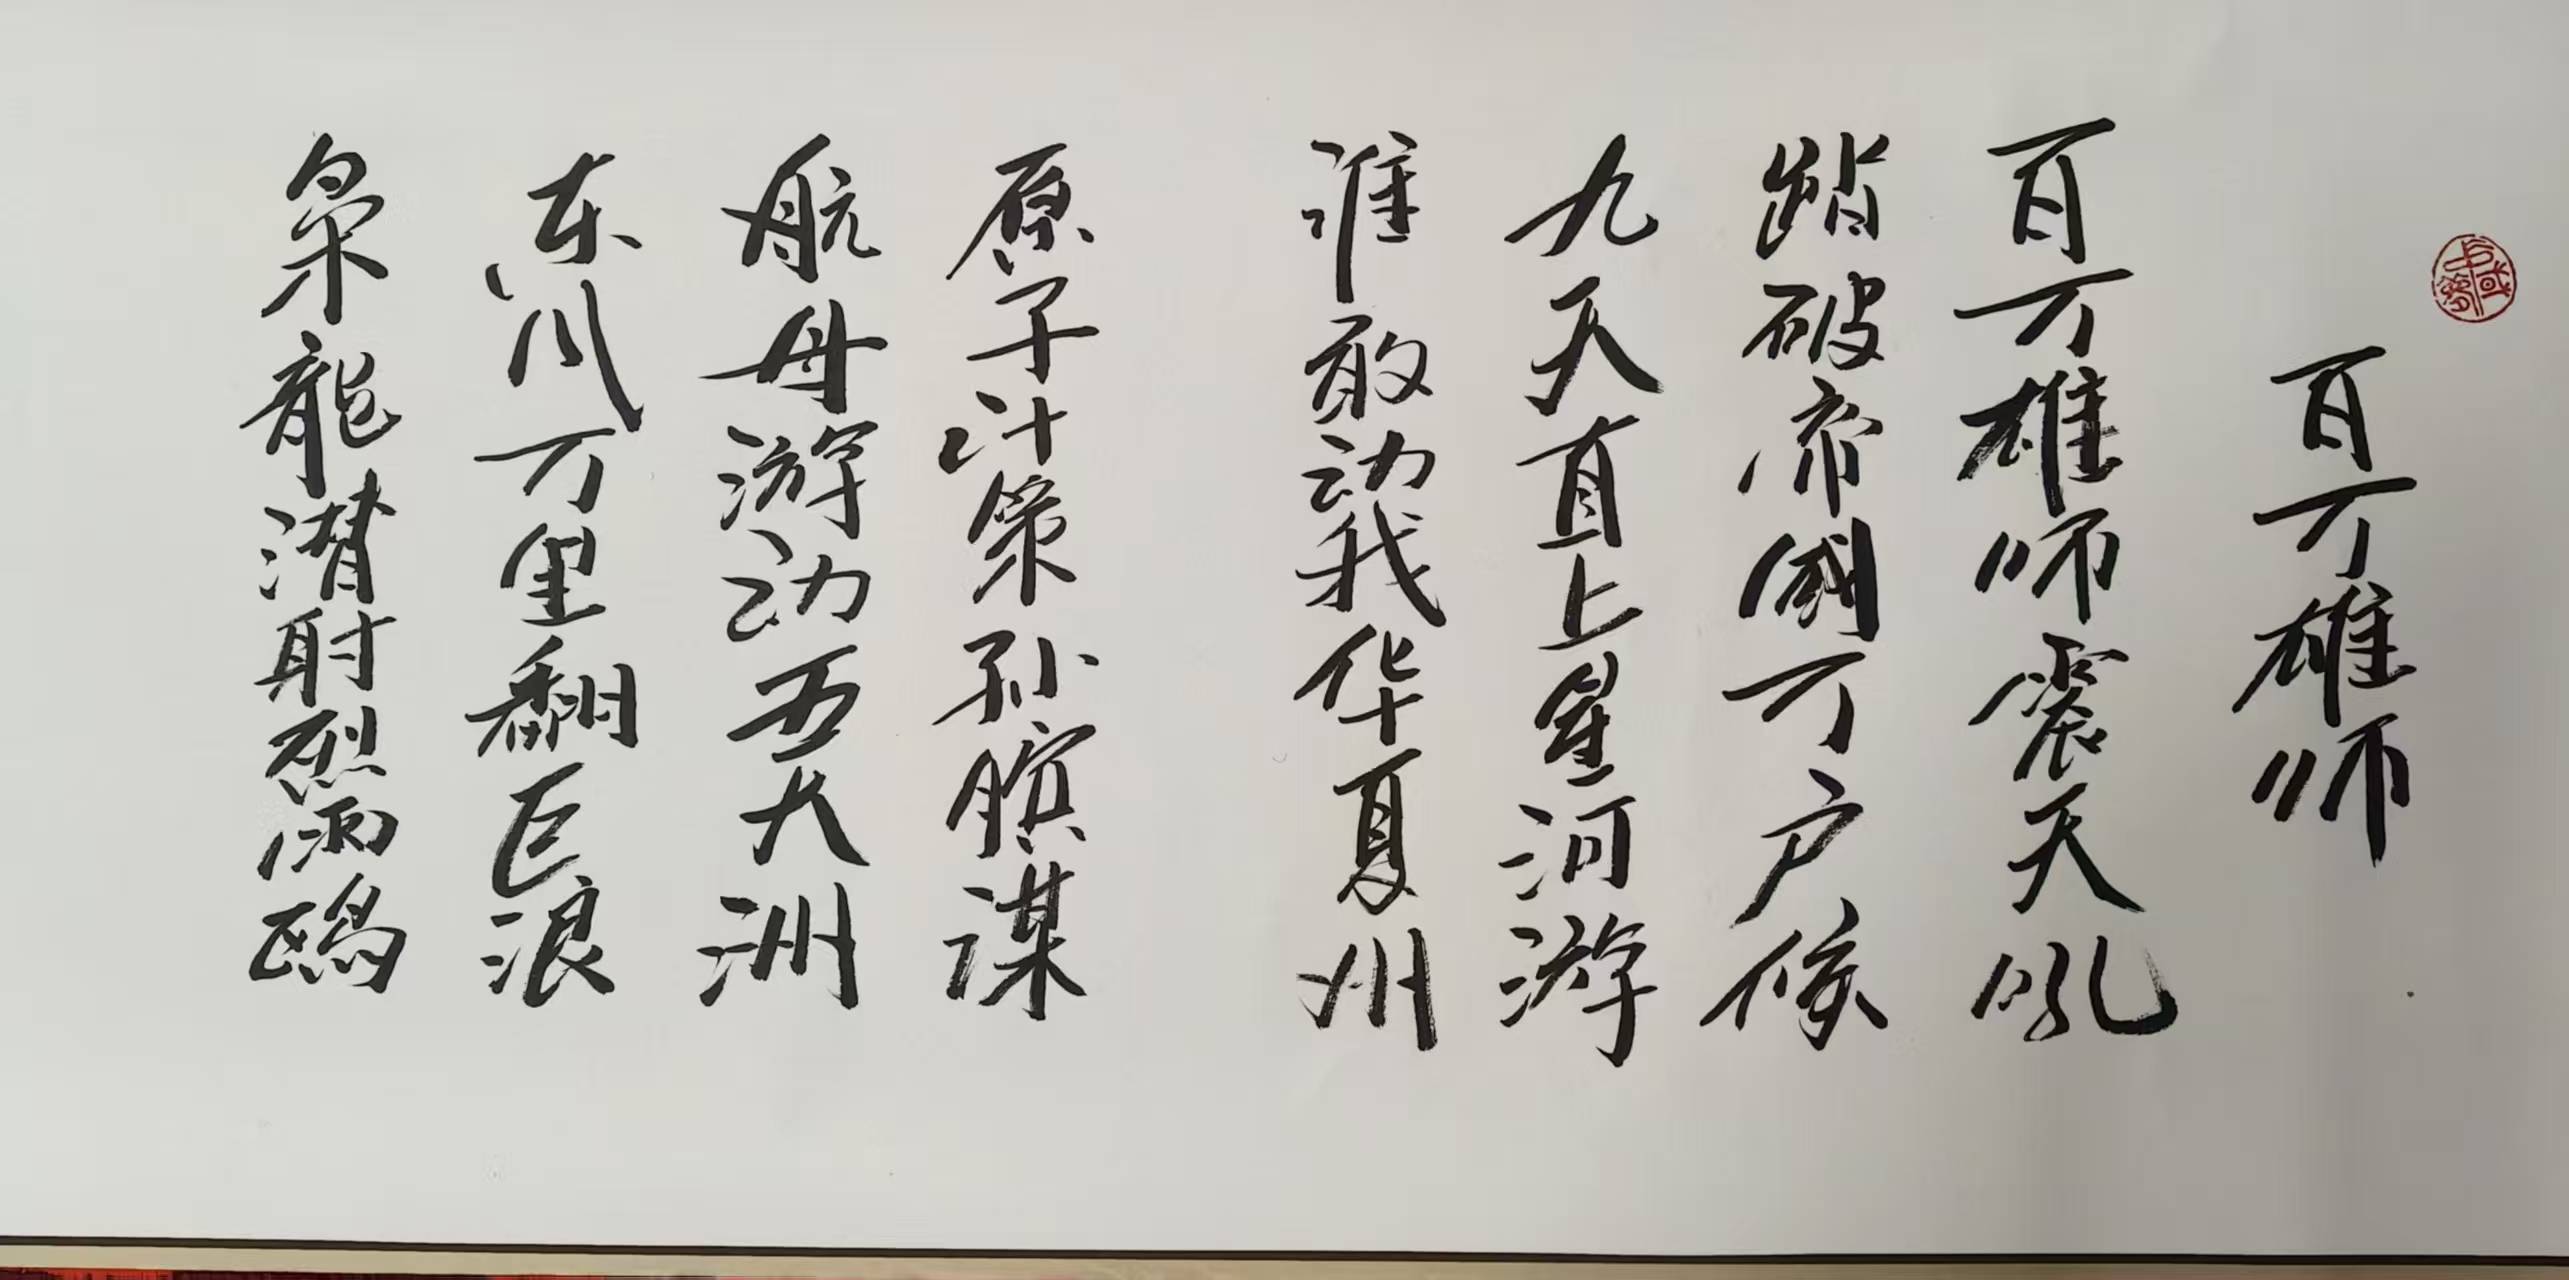 百万雄师
百万雄师震天吼
踏破帝國万户侯
九天直上星河游
谁敢动我华夏州
原子计策孙膑谋
航母游动五大洲
东风万里翻巨浪
枭龍潜射烈雨鸥